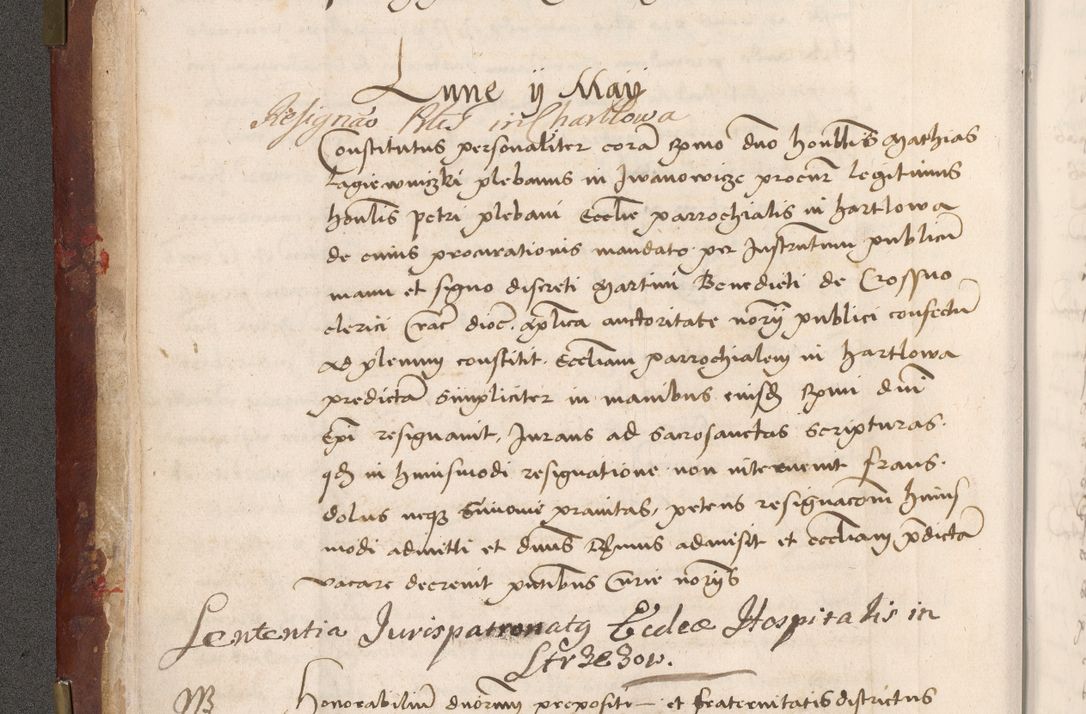 Lune ij Maij
Resignao Pltis in Charttowa
Constitutus personaliter corā Rymo dno honblis Mathias
Lagiewniczki plebanus in Jwanowicze procur legitimus
honlis petri plebani Ecclie parrochialis in hartlowa
de cuius procurationis mandato per Instrutum publicū
manu et signo discreti Martini Benedicti de Crossno
clerici Crac dioc. aplica auctoritate norij publici confectū
ad plenum constitit. Eccliam parrochialem in hartlowa
predictā simpliciter in manibus eiusd Rymi dni
Epi resignauit, Jurans ad sacrosanctas scripturas.
qd in huiusmodi resignatione non interuenit fraus.
dolus neqz Simonie prauitas, petens resignacom huius
modi admitti et dnus Rmus admisit et eccliam pdictā
vacare decreuit pntibus Curie norijs
Sententia Jurispatronatq Ecclæ Hospitalis in
Strzezow.
honorabiliū duorum prepositi et fraternitatis districtus